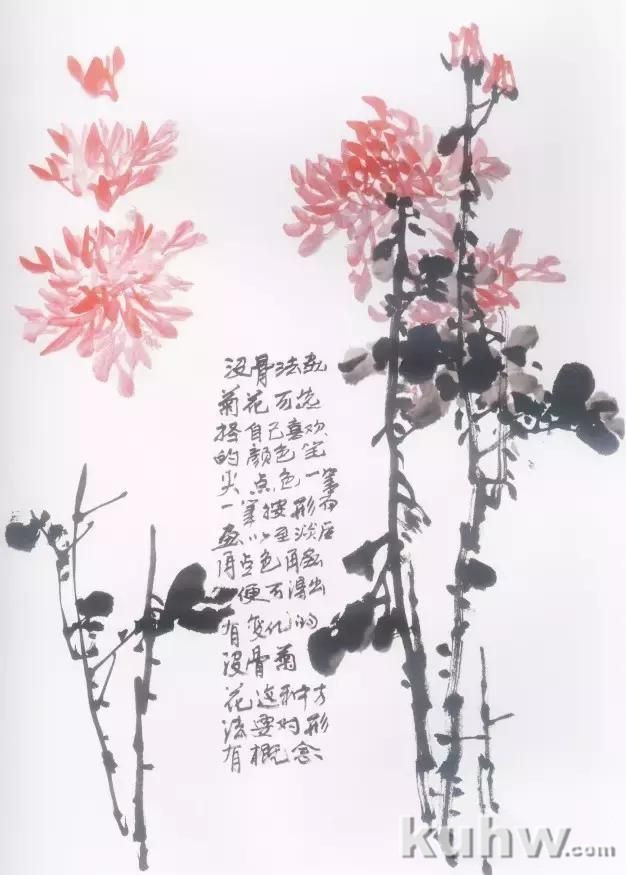 没骨法画
菊花可选
择自己喜欢
的颜色笔
尖点色一笔
一笔按形而
画以至淡后
再点色再画
便可得出
有变化的
没骨菊
花这种方
法要对形
有概念
kuhw.com